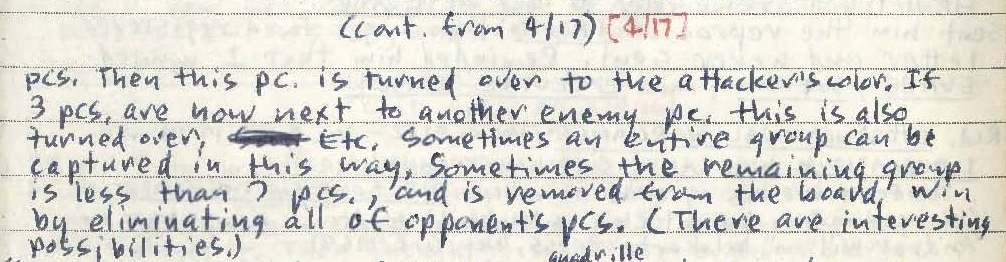 (Cont. from 4/17) [4/17]
pcs. Then this pc. is turned over to the attacker's color. If
3 pcs. are now next to another enemy pc. this is also
turned over, Etc. Sometimes an entire group can be
captured in this way. Sometimes the remaining group
is less than ? pcs., and is removed from the board. Win
by eliminating all of opponent's pcs. (There are interesting
possibilities.)
quadrille